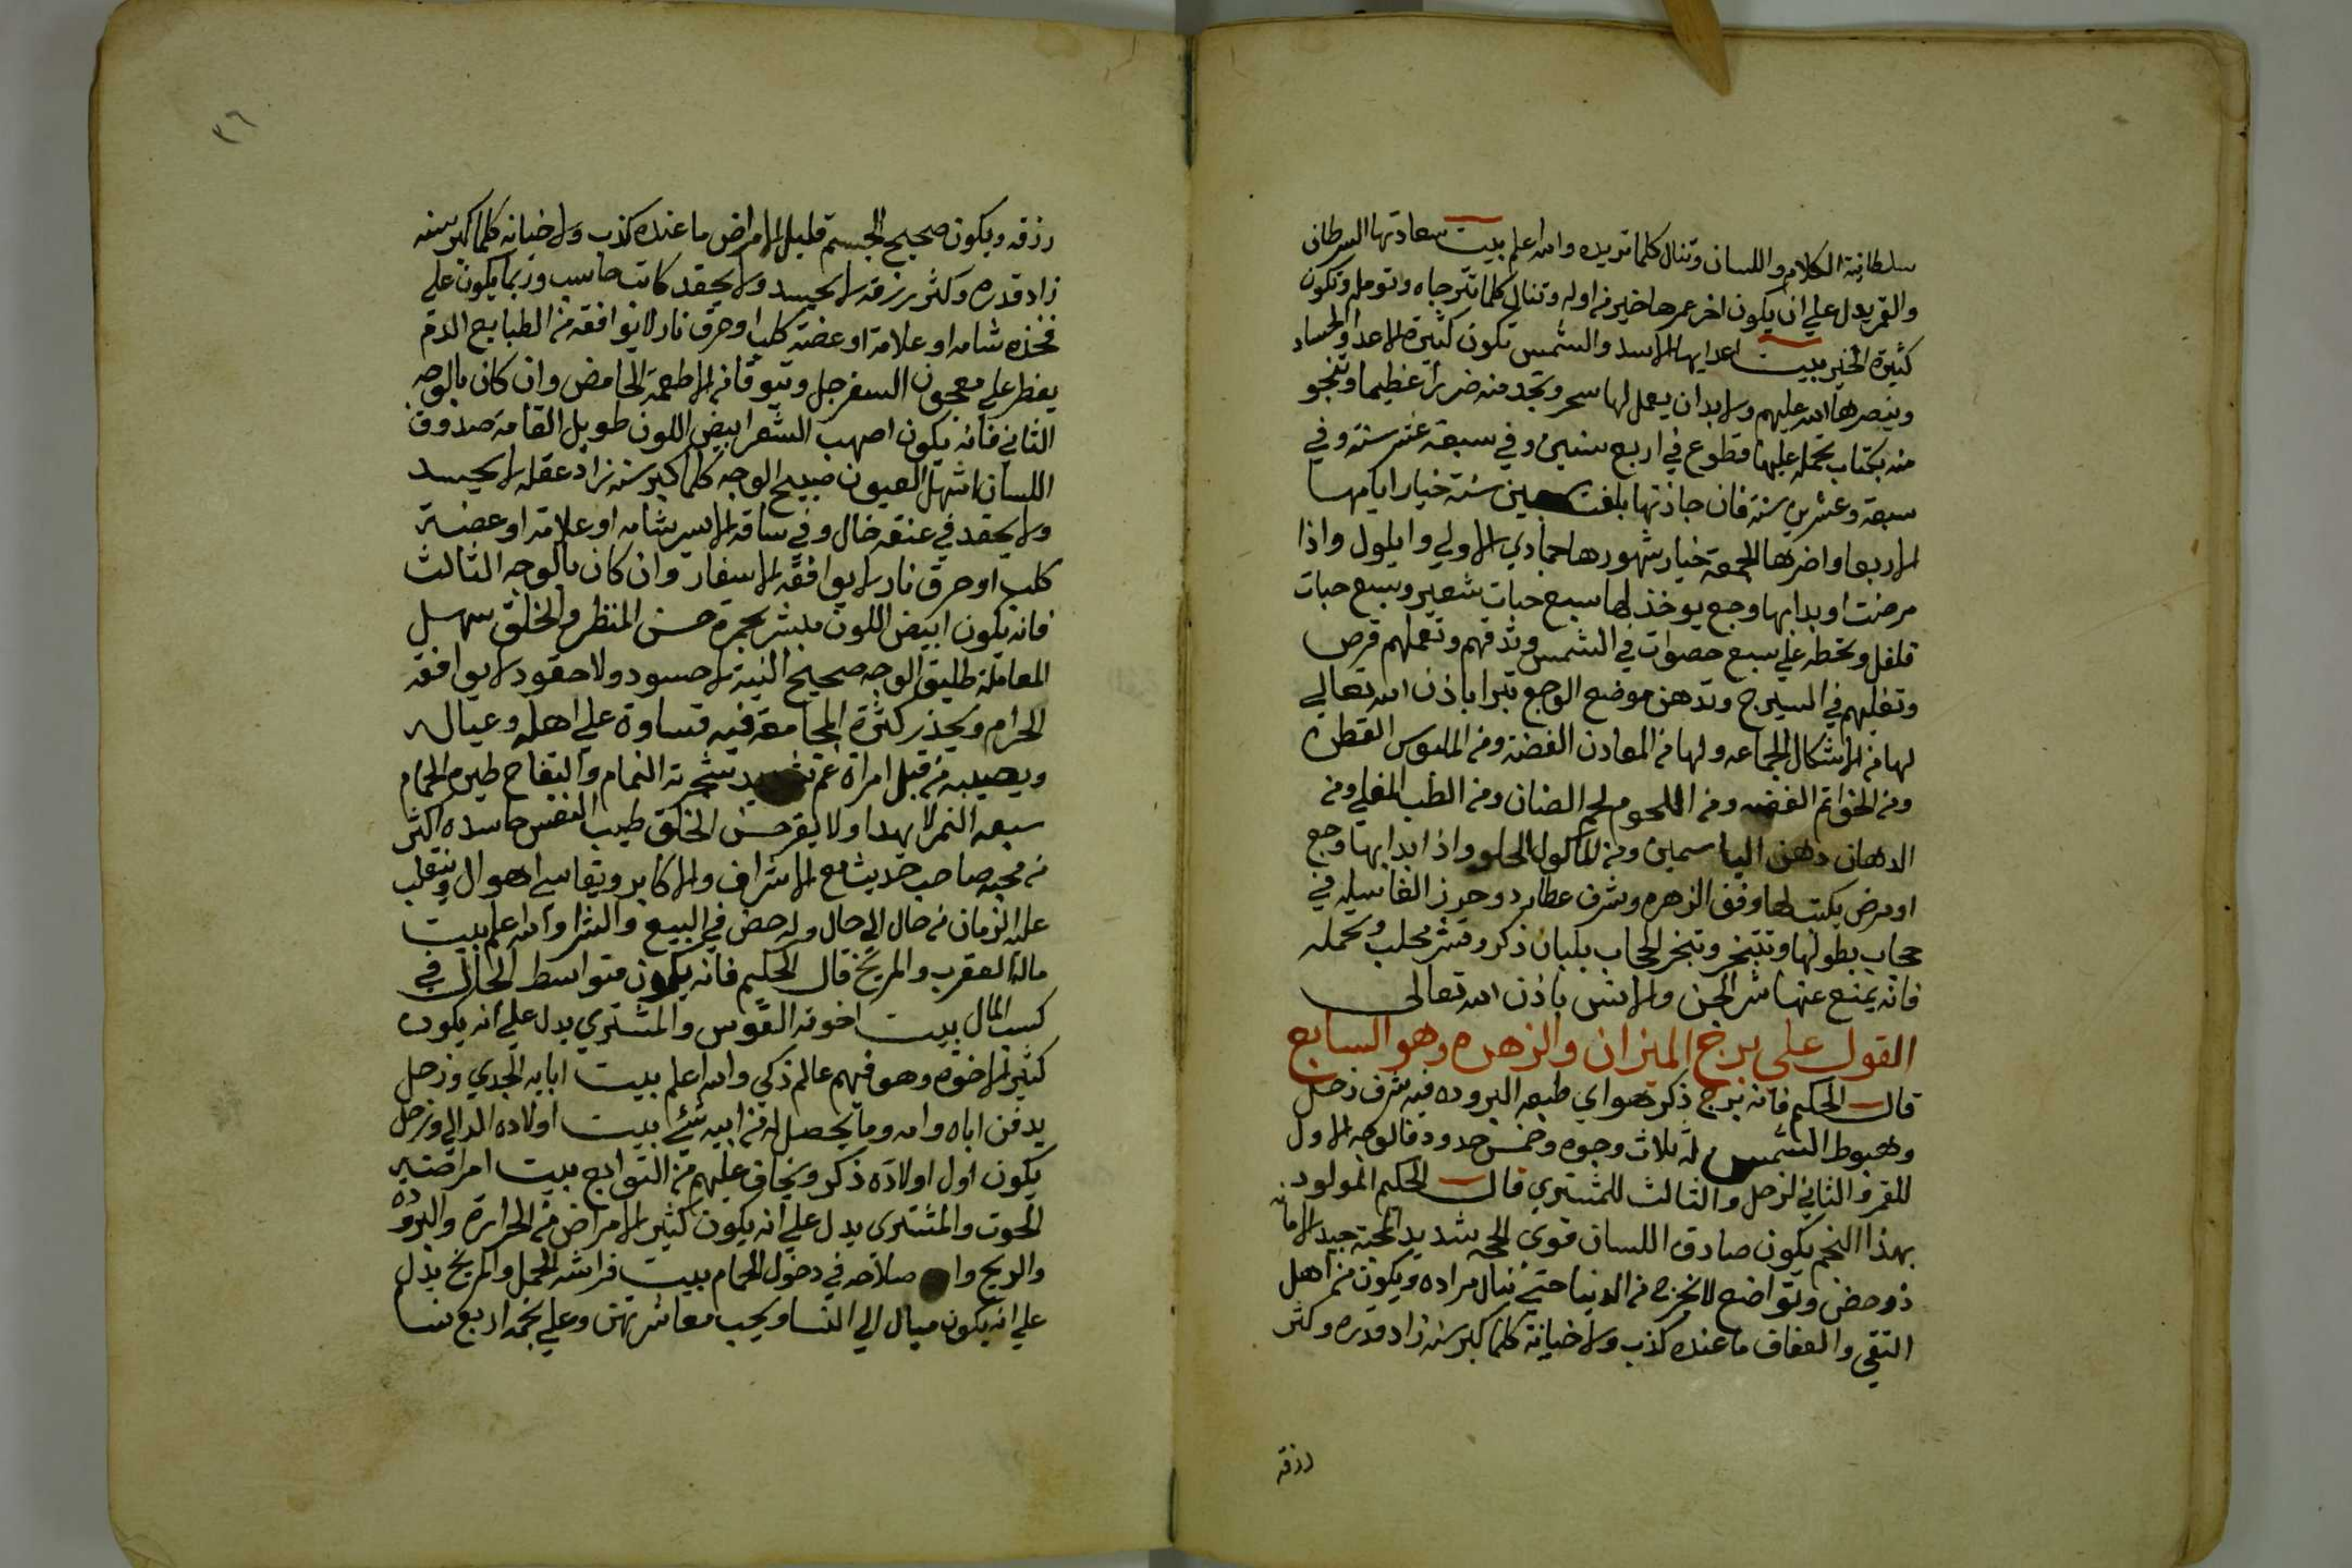 سلطانية الكلام واللسان وتنال كلما تريده والله اعلم بيت سعادتها السرطان
والقمر يدل علي ان يكون اخر عمرها خير من اوله وتنال كلما تترجاه وتومله وتكون
كثيرة الخير بيت اعدايها الاسد والشمس تكون كثيرة الاعدا والحساد
وينصرها الله عليهم ولا بد ان يعمل لها سحر وتجد منه ضررا عظيما وتنجو
منه بكتاب تحمله عليها قطوع في اربع سنين وفي سبعة عشر سنة وفي
سبعة وعشرين سنة فان جازتها بلغت سنة خيار ايامها
الاربعا واضرها الجمعة خيار شهورها جمادي الاولي وايلول واذا
مرضت او بدا بها وجع يوخذ لها سبع حبات شعير وسبع حبات
فلفل وتحطه علي سبع حصوات في الشمس وتدقهم وتعملهم قرص
وتغليهم في السيرج وتدهن موضع الوجع تبرا باذن الله تعالي
لها من الاشكال الجماعه ولها من المعادن الفضة ومن الملبوس القطن
ومن الخواتم الفضه ومن اللحوم لحم الضان ومن الطب المغلي ومن
الادهان دهن الياسمين ومن الماكول الحلو واذا بدا بها وجع
او مرض يكتب لها وفق الزهره وشرف عطارد وحرز الغاسله في
حجاب بطولها وتتبخر وتبخر الحجاب بلبان ذكر وقشر محلب وتحمله
فانه يمنع عنها شر الجن والانس باذن الله تعالي
القول علي برج الميزان والزهره وهو السابع
قال الحكيم فانه برج ذكر هواي طبعه البروده فيه شرف زحل
وهبوط الشمس له ثلاث وجوه وخمس حدود فالوجه الاول
للقمر والثاني لزحل والثالث للمشتري قال الحكيم المولود
بهذا النجم يكون صادق اللسان قوي الحجه شديد المحبة جيد الامانه
ذو حض وتواضع لا يخرج من الدنيا حتي ينال مراده ويكون من اهل
التقي والعفاف ما عنده كذب ولا خيانة كلما كبر سنه زاد قدره وكثر
رزقه
٣٦
رزقه ويكون صحيح الجسم قليل الامراض ما عنده كذب ولا خيانه كلما كبر سنه
زاد قدره وكثر رزقه لا يحسد ولا يحقد كاتب حاسب وربما يكون علي
فخذه شامه او علامة او عضة كلب او حرق نار لا يوافقه من الطبايع الدم
يفطر علي معجون السفرجل ويتوقا من الاطعمة الحامض وان كان بالوجه
الثاني فانه يكون اصهب الشعر ابيض اللون طويل القامة صدوق
اللسان اشهل العيون صبيح الوجه كلما كبر سنه زاد عقله لا يحسد
ولا يحقد في عنقه خال وفي ساقه الايسر شامه او علامة او عضة
كلب او حرق نار لا يوافقه الاسفار وان كان بالوجه الثالث
فانه يكون ابيض اللون بحمرة حسن المنظر والخلق سهل
المعاملة طليق الوجه صحيح النية لا حسود ولا حقود لا يوافقه
الحرام ويحذر كثرة المجامعة فيه قساوة علي اهله وعياله
ويصيبه من قبل امراة غم شجرته النمام والتفاح طيره الحمام
سبعه النمر لا يهدا ولا يقر حسن الخلق طيب النفس حاسده اكثر
من محبه صاحب حديث مع الاشراف والاكابر ويقاسي اهوال وينقلب
عليه الزمان من حال الي حال وله حض في البيع والشرا والله اعلم بيت
ماله العقرب والمريخ قال الحكيم فانه يكون متواسط الحال في
كسب المال بيت اخوته القوس والمشتري يدل علي انه يكون
كثير الاخوة وهو فهيم عالم ذكي والله اعلم بيت ابايه الجدي وزحل
يدفن اباه وامه وما يحصل له من ابيه شي بيت اولاده الدالي وزحل
يكون اول اولاده ذكر ويخاف عليهم من التوابع بيت امراضه
الحوت والمشتري يدل علي انه يكون كثير الامراض من الحرارة والبروده
والريح صلاحه في دخول الحمام بيت فراشه الحمل والمريخ يدل
علي انه يكون ميال الي النسا ويحب معاشرتهن وعلي نجمه اربع نسا